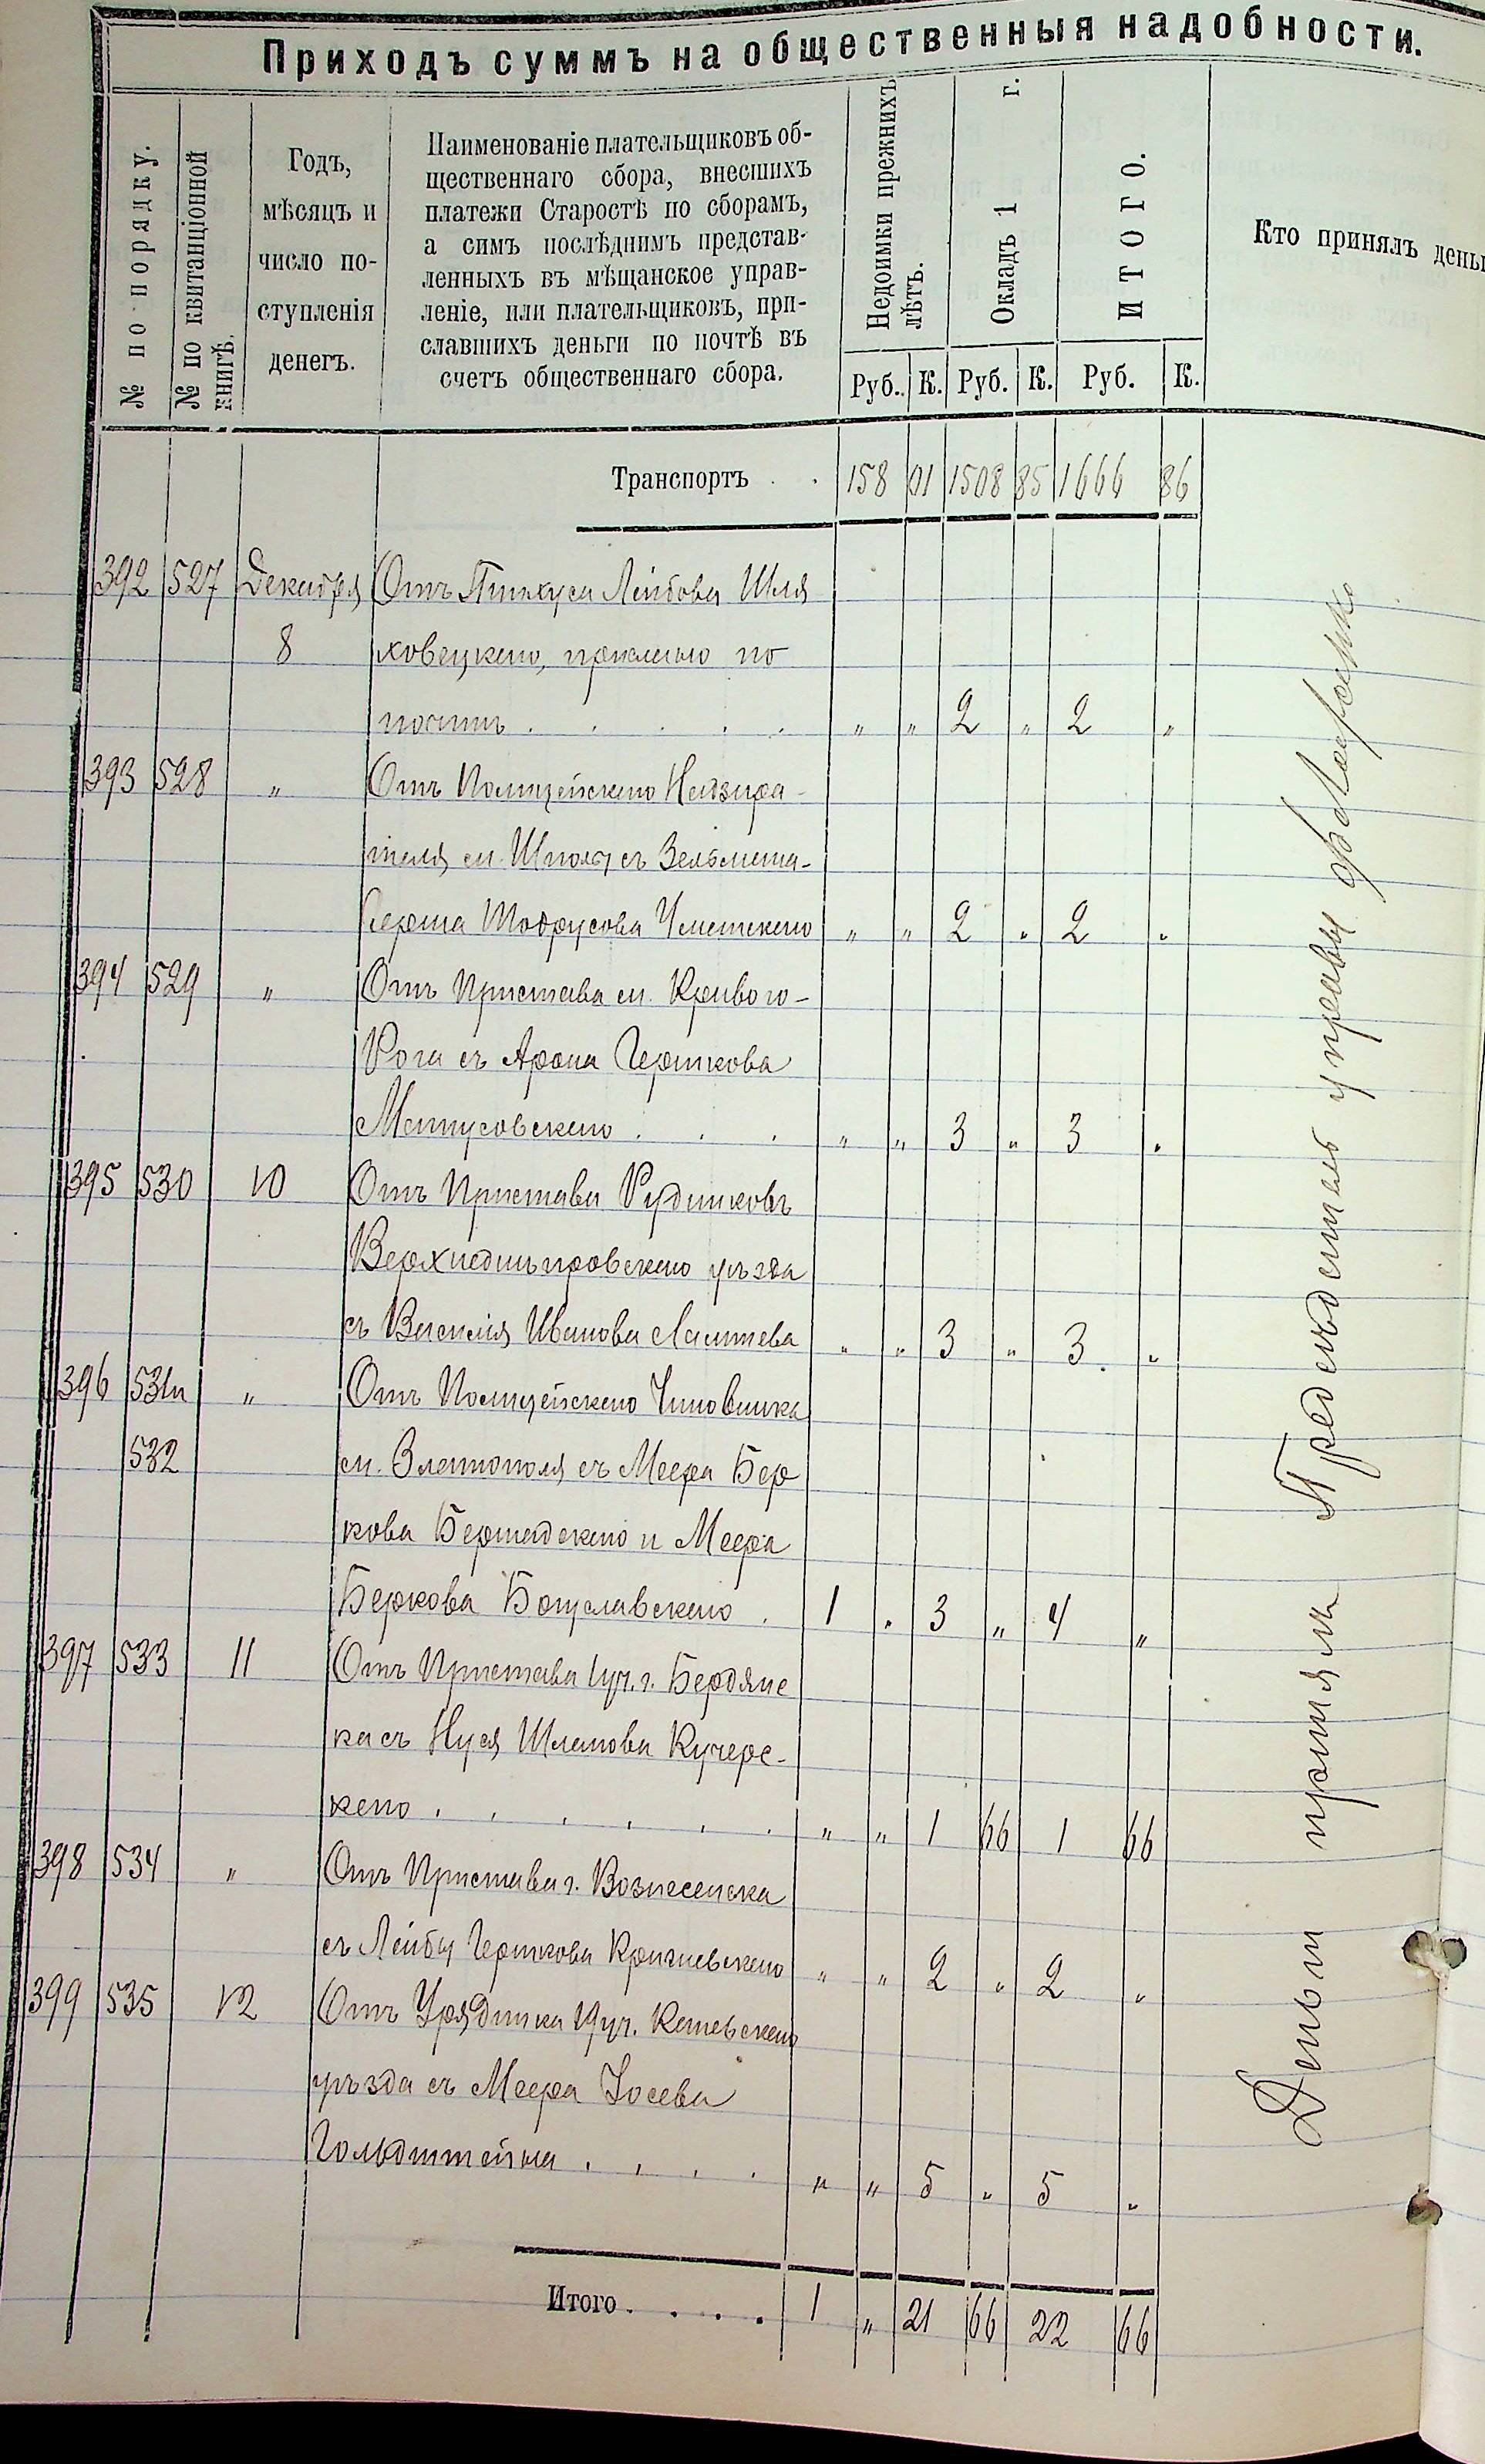 Приходъ суммъ на общественныя надобности.
№ по порядку.
№ по квитанціонной
книгѣ.
Годъ,
мѣсяцъ и
число по-
ступленія
денегъ.
Наименованіе плательщиковъ об-
щественнаго сбора, внесшихъ
платежи Старостѣ по сборамъ,
а симъ послѣднимъ представ-
ленныхъ въ мѣщанское управ-
леніе, или плательщиковъ, при-
славшихъ деньги по почтѣ въ
счетъ общественнаго сбора.
Недоимки прежнихъ
лѣтъ.
Окладъ 1 г.
ИТОГО.
Кто принялъ день
Руб. К. Руб. К. Руб. К.
Транспортъ . . 158 01 1508 85 1666 86
392 527 Декабря Отъ Пинхуса Лейбова Шля
8 ховецкаго, прислано по
почтѣ . . . . . " " 2 " 2 "
393 528 " Отъ Полицейскаго Надзира-
теля м. Шполы съ Зельмана-
Герша Шадрусова Уманскаго " " 2 " 2 "
394 529 " Отъ Пристава м. Кривого-
Рога съ Арона Гершкова
Матусовскаго . . . " " 3 " 3 "
395 530 10 Отъ Пристава Рудниковъ
Верхнеднѣпровскаго уѣзда
съ Василія Иванова Лаптева " " 3 " 3 "
396 531 и " Отъ Полицейскаго Чиновника
532 м. Златополя съ Меера Бер
кова Бершадскаго и Меера
Беркова Богуславскаго . 1 " 3 " 4 "
397 533 11 Отъ Пристава 1 уч. г. Бердянс
ка съ Нуся Шлемова Кучерс-
каго . . . . . . " " 1 66 1 66
398 534 " Отъ Пристава г. Вознесенска
съ Лейбы Гершкова Кричевскаго " " 2 " 2 "
399 535 12 Отъ Урядника 19 уч. Каневскаго
уѣзда съ Меера Іосева
Гольдштейна . . . . " " 5 " 5 "
Итого . . . . 1 " 21 66 22 66
Деньги принялъ Предсѣдатель управы